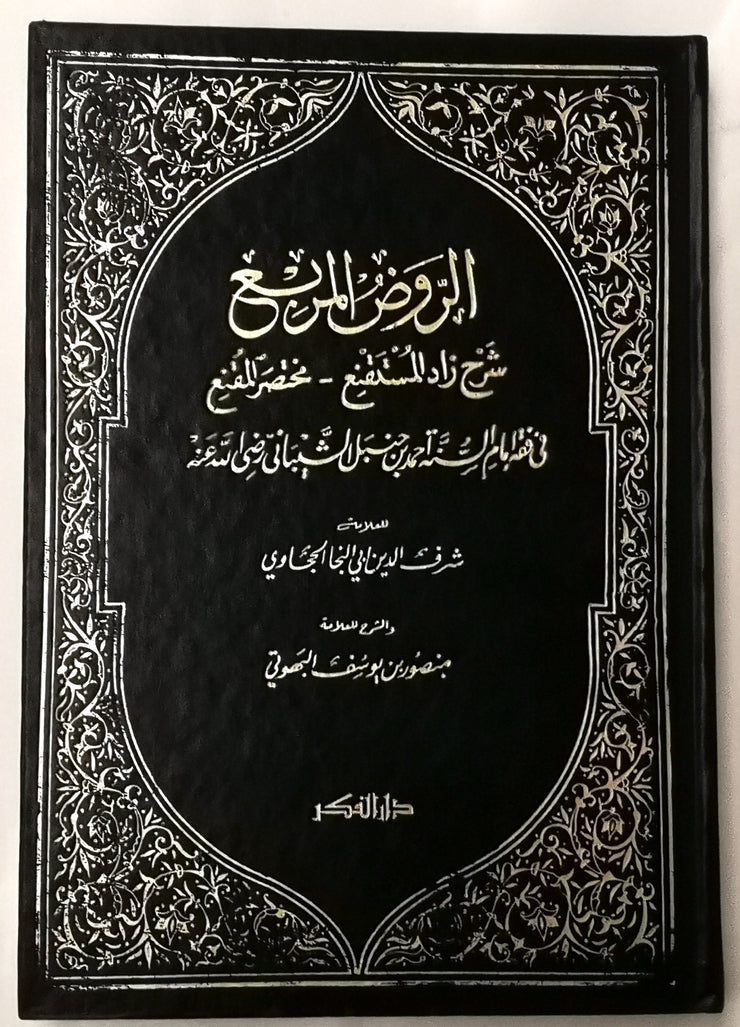 الرَّوَضُ المربِع
شَرْح زاد المُسْتَقنِع - مختصَر المُقنِع
في فقه إمام السُّنَّة أحمد بن حنبل الشَّيْبَانيّ رضي الله عَنْهُ
للعلامة
شرف الدين أبي النجا الحجاوي
والشرح للعلامة
منصور بن يوسُف البهوتي
دار الفكر